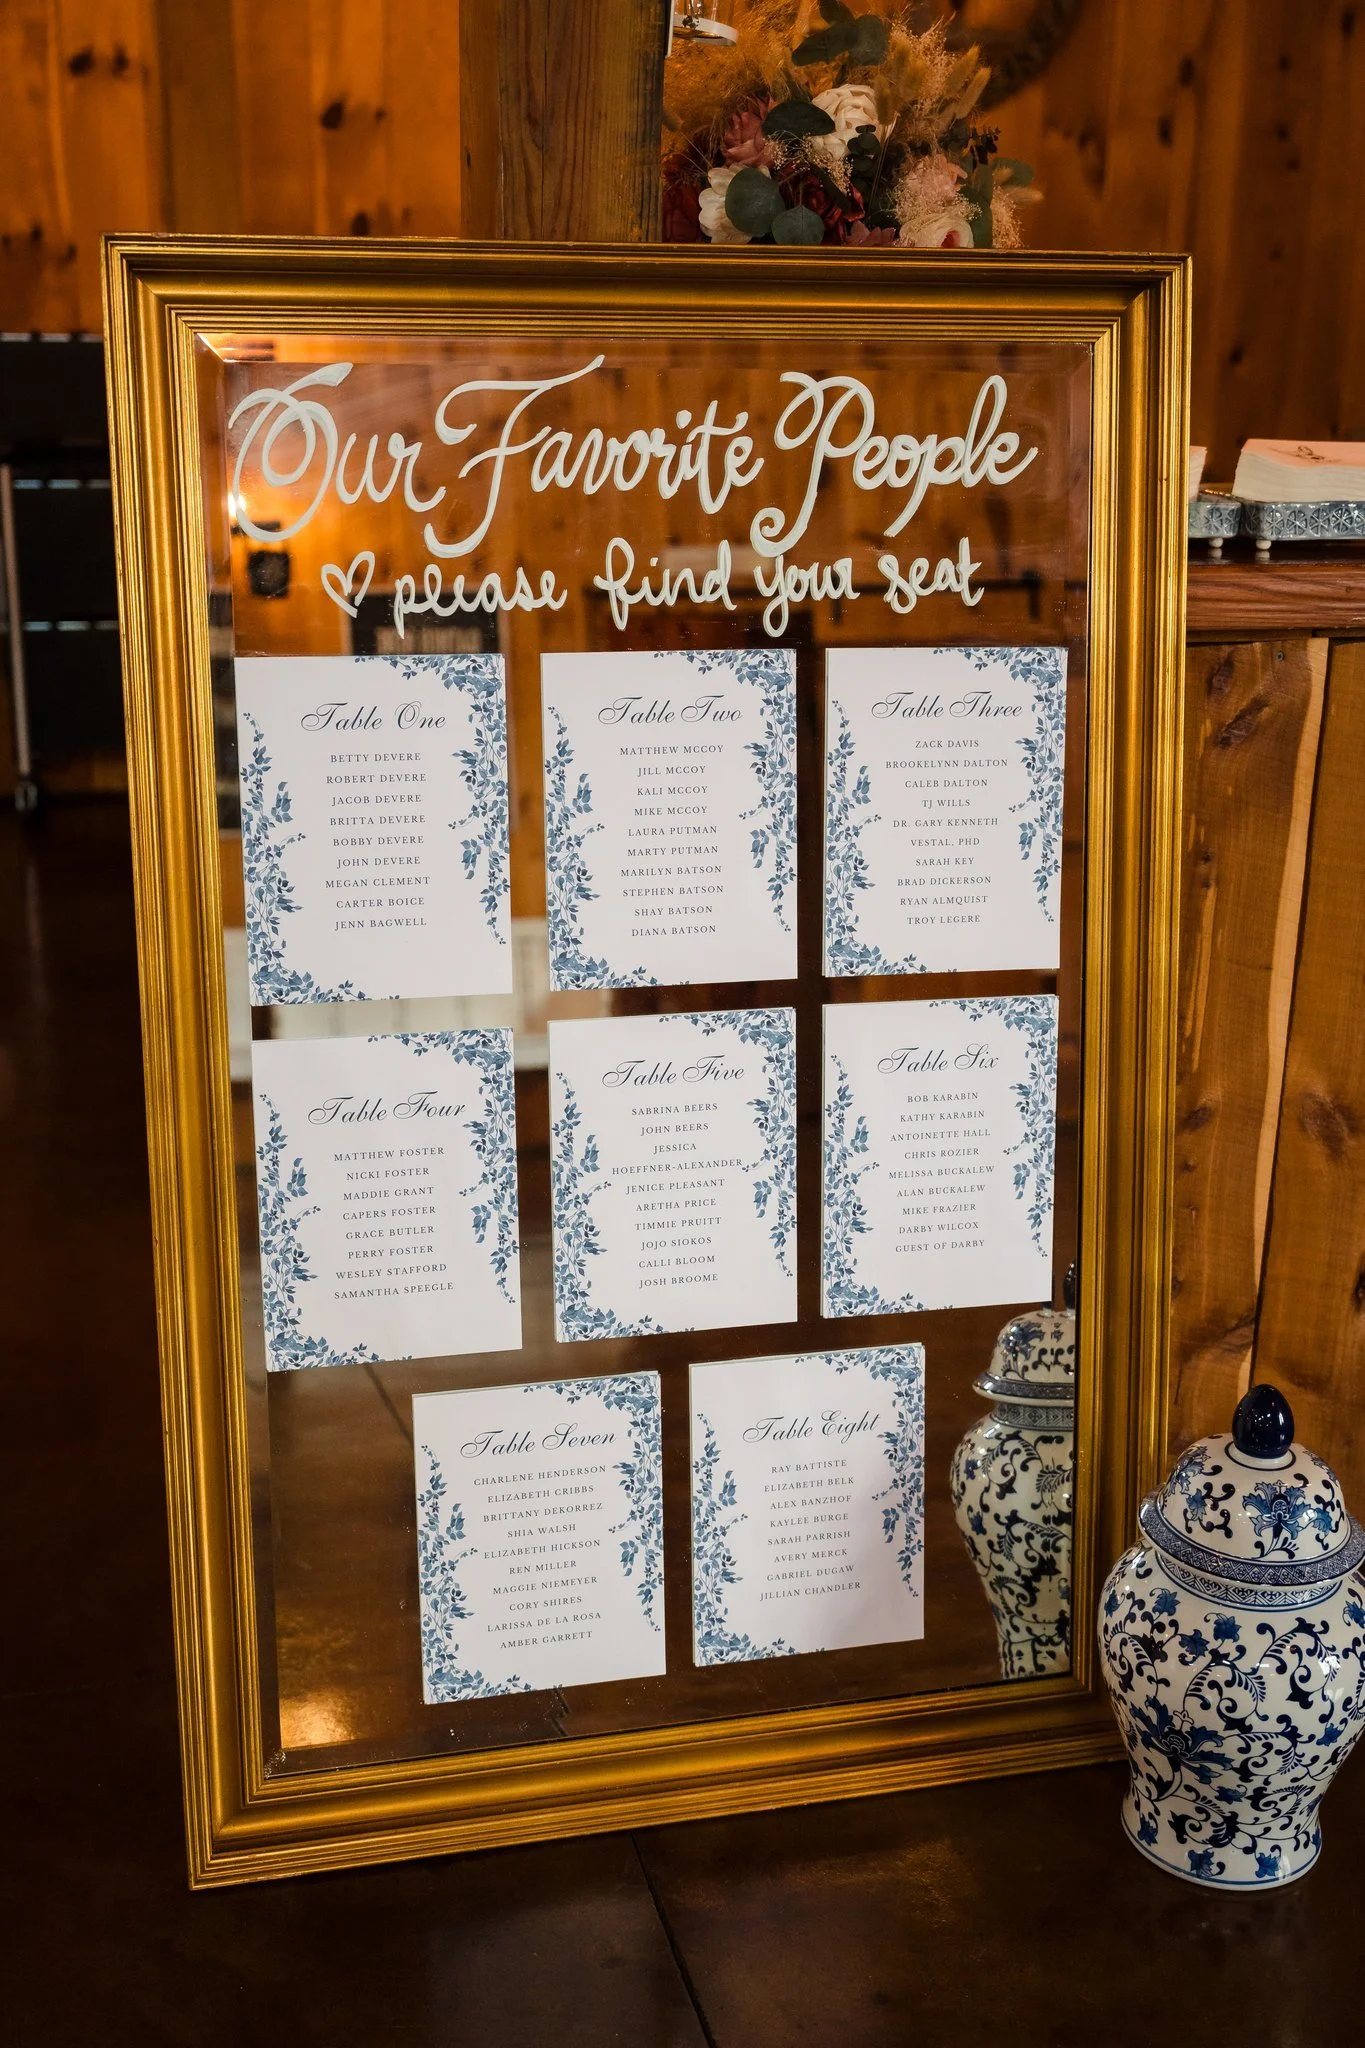 Our Favorite People
please find your seat
Table One
BETTY DEVERE
ROBERT DEVERE
JACOB DEVERE
BRITTA DEVERE
BOBBY DEVERE
JOHN DEVERE
MEGAN CLEMENT
CARTER BOICE
JENN BAGWELL
Table Two
MATTHEW MCCOY
JILL MCCOY
KALI MCCOY
MIKE MCCOY
LAURA PUTMAN
MARTY PUTMAN
MARILYN BATSON
STEPHEN BATSON
SHAY BATSON
DIANA BATSON
Table Three
ZACK DAVIS
BROOKELYNN DALTON
CALEB DALTON
TJ WILLS
DR. GARY KENNETH
VESTAL, PHD
SARAH KEY
BRAD DICKERSON
RYAN ALMQUIST
TROY LEGERE
Table Four
MATTHEW FOSTER
NICKI FOSTER
MADDIE GRANT
CAPERS FOSTER
GRACE BUTLER
PERRY FOSTER
WESLEY STAFFORD
SAMANTHA SPEEGLE
Table Five
SABRINA BEERS
JOHN BEERS
JESSICA
HOEFFNER-ALEXANDER
JENICE PLEASANT
ARETHA PRICE
TIMMIE PRUITT
JOJO SIOKOS
CALLI BLOOM
JOSH BROOME
Table Six
BOB KARABIN
KATHY KARABIN
ANTOINETTE HALL
CHRIS ROZIER
MELISSA BUCKALEW
ALAN BUCKALEW
MIKE FRAZIER
DARBY WILCOX
GUEST OF DARBY
Table Seven
CHARLENE HENDERSON
ELIZABETH CRIBBS
BRITTANY DEKORREZ
SHIA WALSH
ELIZABETH HICKSON
REN MILLER
MAGGIE NIEMEYER
CORY SHIRES
LARISSA DE LA ROSA
AMBER GARRETT
Table Eight
RAY BATTISTE
ELIZABETH BELK
ALEX BANZHOF
KAYLEE BURGE
SARAH PARRISH
AVERY MERCK
GABRIEL DUGAW
JILLIAN CHANDLER